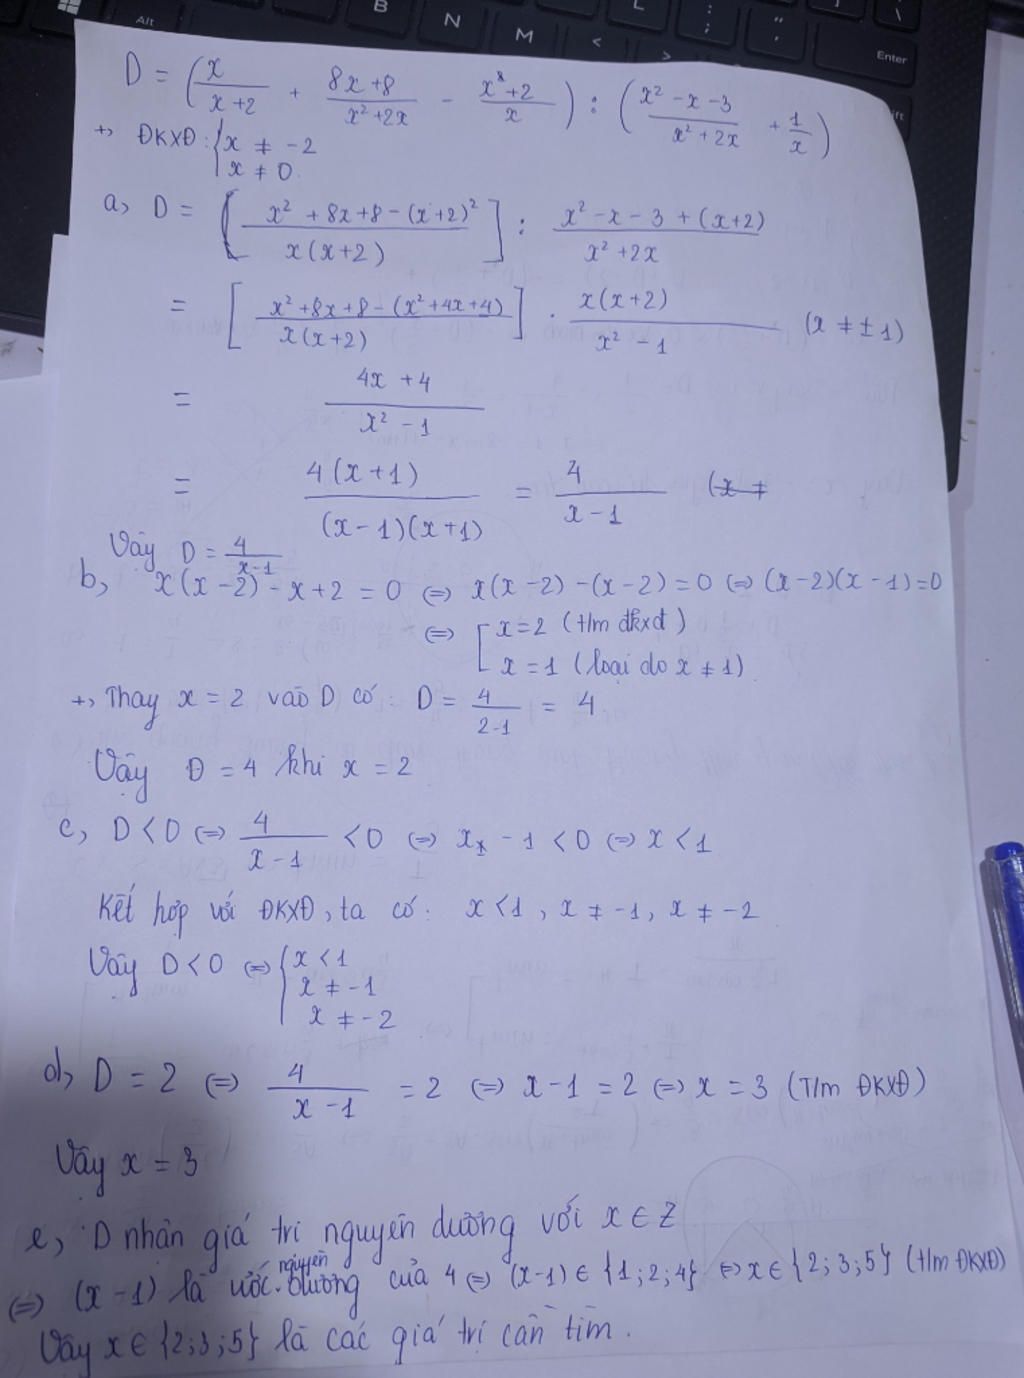 Alt B N M < > L : ; " ' | \ Enter
D = (x/(x+2) + (8x+8)/(x²+2x) - (x⁸+2)/x) : ((x²-x-3)/(x²+2x) + 1/x)
+, ĐKXĐ: { x ≠ -2
x ≠ 0.
a, D = [(x² + 8x+8-(x+2)²)/(x(x+2))] : (x²-x-3+(x+2))/(x²+2x)
= [(x²+8x+8-(x²+4x+4))/(x(x+2))] . (x(x+2))/(x²-1) (x ≠ ±1)
= (4x+4)/(x²-1)
= (4(x+1))/((x-1)(x+1)) = 4/(x-1) (x ≠
Vậy D = 4/(x-1)
b, x(x-2)-x+2 = 0 ⇔ x(x-2)-(x-2)=0 ⇔ (x-2)(x-1)=0
⇔ [ x=2 (t/m đkxđ)
x=1 (loại do x ≠ 1)
+, Thay x = 2 vào D có: D = 4/(2-1) = 4
Vậy D = 4 khi x = 2
c, D<0 ⇔ 4/(x-1) <0 ⇔ x - 1 < 0 ⇔ x < 1
Kết hợp với ĐKXĐ, ta có: x<1, x ≠ -1, x ≠ -2
Vậy D<0 ⇔ { x < 1
x ≠ -1
x ≠ -2
d, D = 2 ⇔ 4/(x-1) = 2 ⇔ x-1 = 2 ⇔ x = 3 (T/m ĐKXĐ)
Vậy x = 3
e, D nhận giá trị nguyên dương với x ∈ Z
⇔ (x-1) là ước nguyên dương của 4 ⇔ (x-1) ∈ {1;2;4} ⇔ x ∈ {2;3;5} (t/m ĐKXĐ)
Vậy x ∈ {2;3;5} là các giá trị cần tìm.